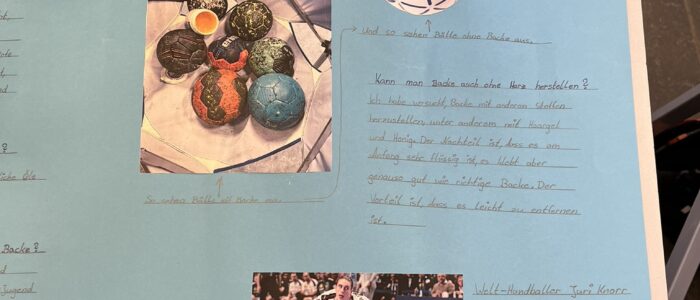 ote
?
iche Öle
Backe?
d
Jugend
So sehen Bälle mit Backe aus.
Und so sehen Bälle ohne Backe aus.
Kann man Backe auch ohne Harz herstellen?
Ich habe versucht, Backe mit anderen Stoffen
herzustellen, unter anderem mit Haargel
und Honig. Der Nachteil ist, dass es am
Anfang sehr flüssig ist, es klebt aber
genauso gut wie richtige Backe. Der
Vorteil ist, dass es leicht zu entfernen
ist.
Welt-Handballer Juri Knorr